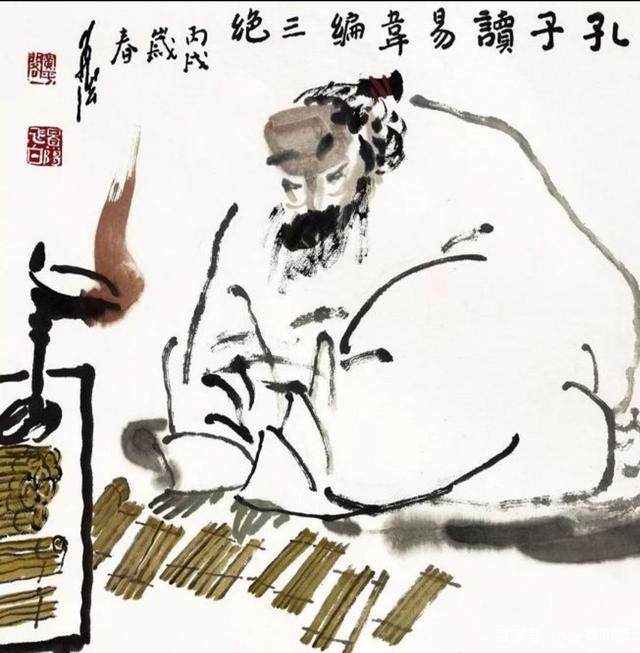 孔子讀易韋編三绝
丙戌
歲
春